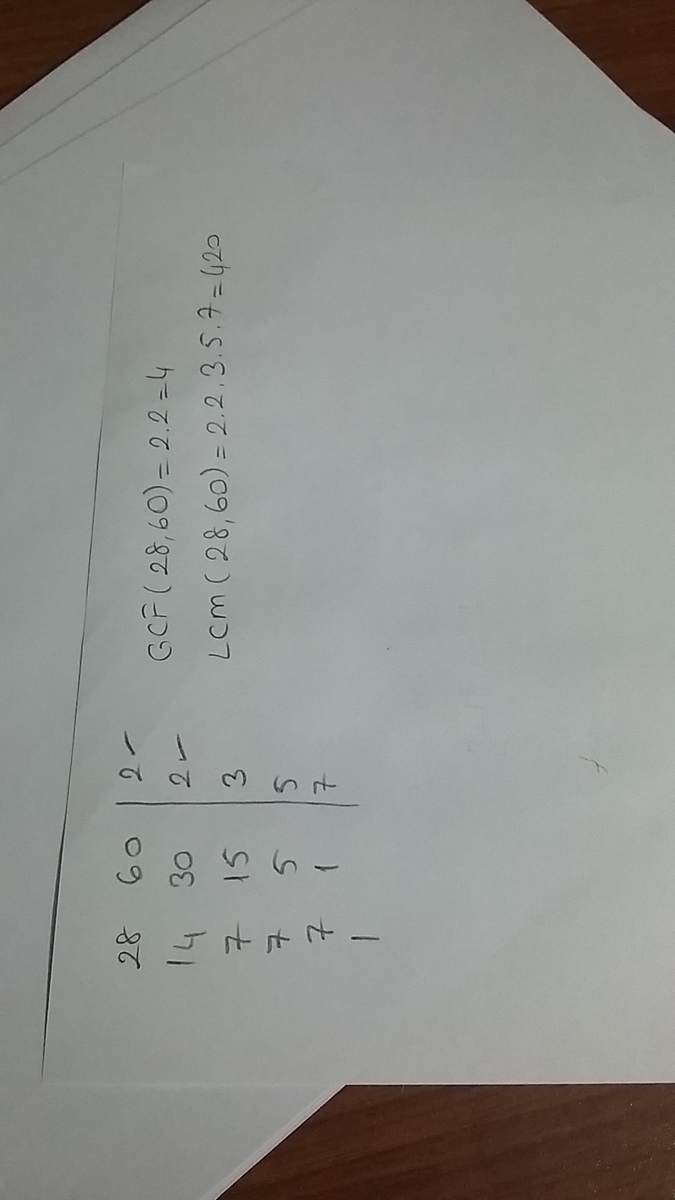 28 60 | 2 ✓ GCF (28,60) = 2.2 = 4
14 30 | 2 ✓
7 15 | 3 LCM (28,60) = 2.2.3.5.7 = 420
7 5 | 5
7 1 | 7
1